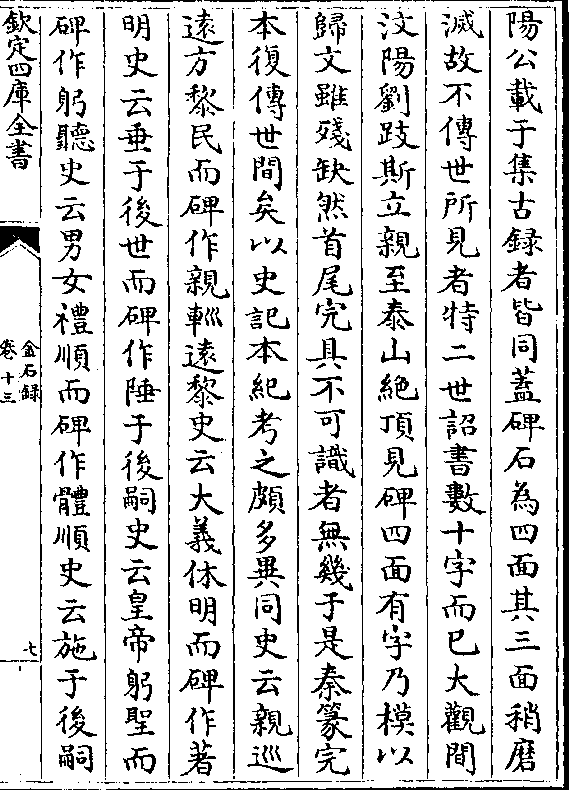 陽公載于集古録者皆同蓋碑石為四面其三面稍磨
滅故不傳世所見者特二世詔書數十字而已大觀間
汶陽劉跂斯立親至泰山絶頂見碑四面有字乃模以
歸文雖殘缺然首尾完具不可識者無幾于是秦篆完
本復傳世間矣以史記本紀考之頗多異同史云親巡
遠方黎民而碑作親輙遠黎史云大義休明而碑作著
明史云垂于後世而碑作陲于後嗣史云皇帝躬聖而
碑作躬聽史云男女禮順而碑作體順史云施于後嗣
欽定四庫全書
金石録
卷十三
七